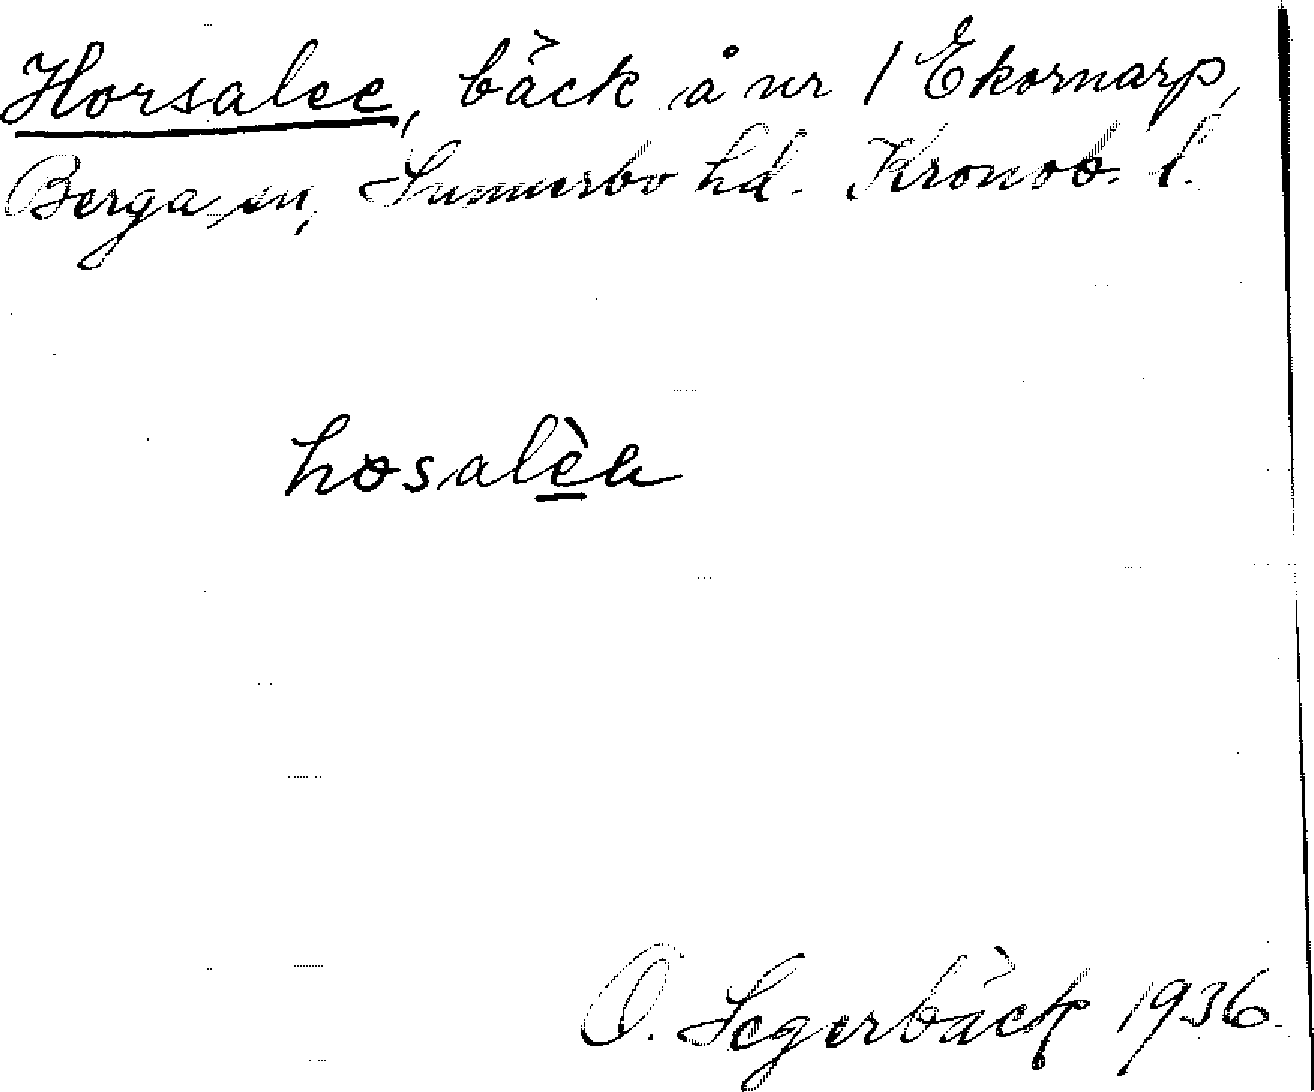 Horsalee, bäck å nr 1 Ekornarp,
Berga sn, Sunnerbo hd. Kronob. l.
O. Segerbäck 1936.